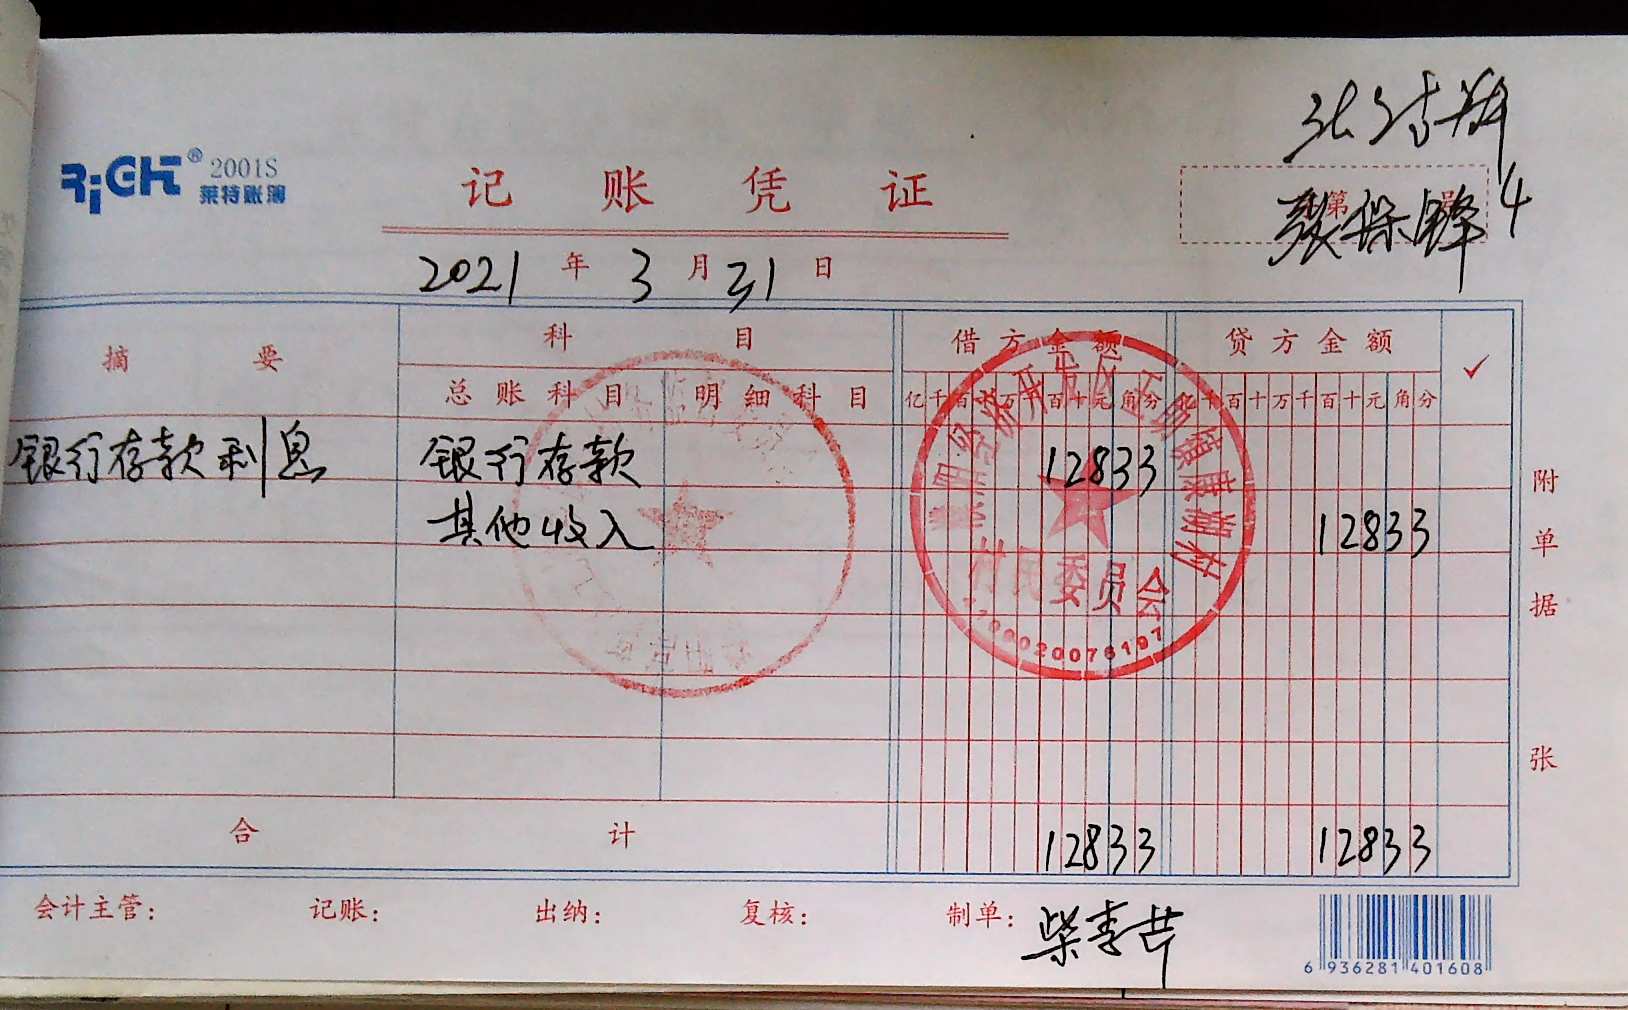 RiGHT® 2001S
莱特账簿
记账凭证
第 号
4
2021年3月31日
摘要
科目
借方金额
贷方金额
✓
总账科目
明细科目
亿千百十万千百十元角分
亿千百十万千百十元角分
银行存款利息 银行存款 12833
其他收入 12833
村民委员会
附单据 张
合计 12833 12833
会计主管: 记账: 出纳: 复核: 制单:
6 936281 401608